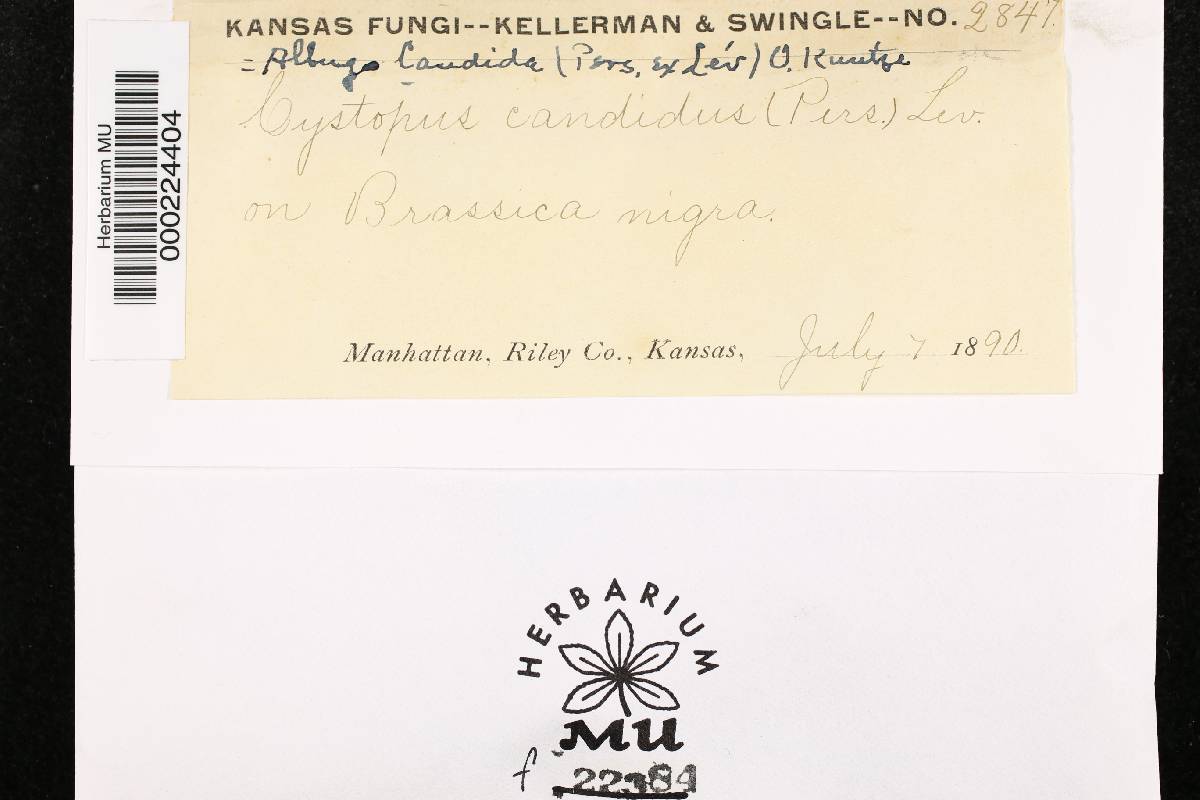 KANSAS FUNGI--KELLERMAN & SWINGLE--NO. 2847.
= Albugo Candida (Pers. ex Lév) O. Kuntze
Cystopus candidus (Pers.) Lev.
on Brassica nigra.
Manhattan, Riley Co., Kansas, July 7 1890.
Herbarium MU
000224404
HERBARIUM
MU
f 22384